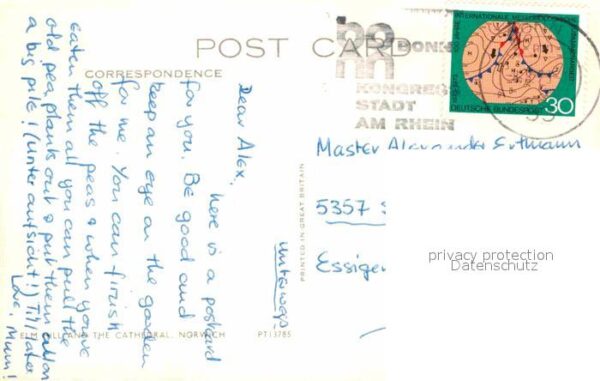 POST CARD
CORRESPONDENCE
unterwegs
Dear Alex,
here is a postcard
for you. Be good and
keep an eye on the garden
for me. You can finish
off the peas & when you've
eaten them all you can pull the
old pea plants out & put them all on
a big pile! (Unter aufsicht!) Till later
Love, Mum!
ELM HILL AND THE CATHEDRAL, NORWICH
PT13785
PRINTED IN GREAT BRITAIN
BONN
KONGRESS
STADT
AM RHEIN
INTERNATIONALE METEOROLOGISCHE
DEUTSCHE BUNDESPOST
30
Master Alexander Ertmann
5357
privacy protection
Datenschutz